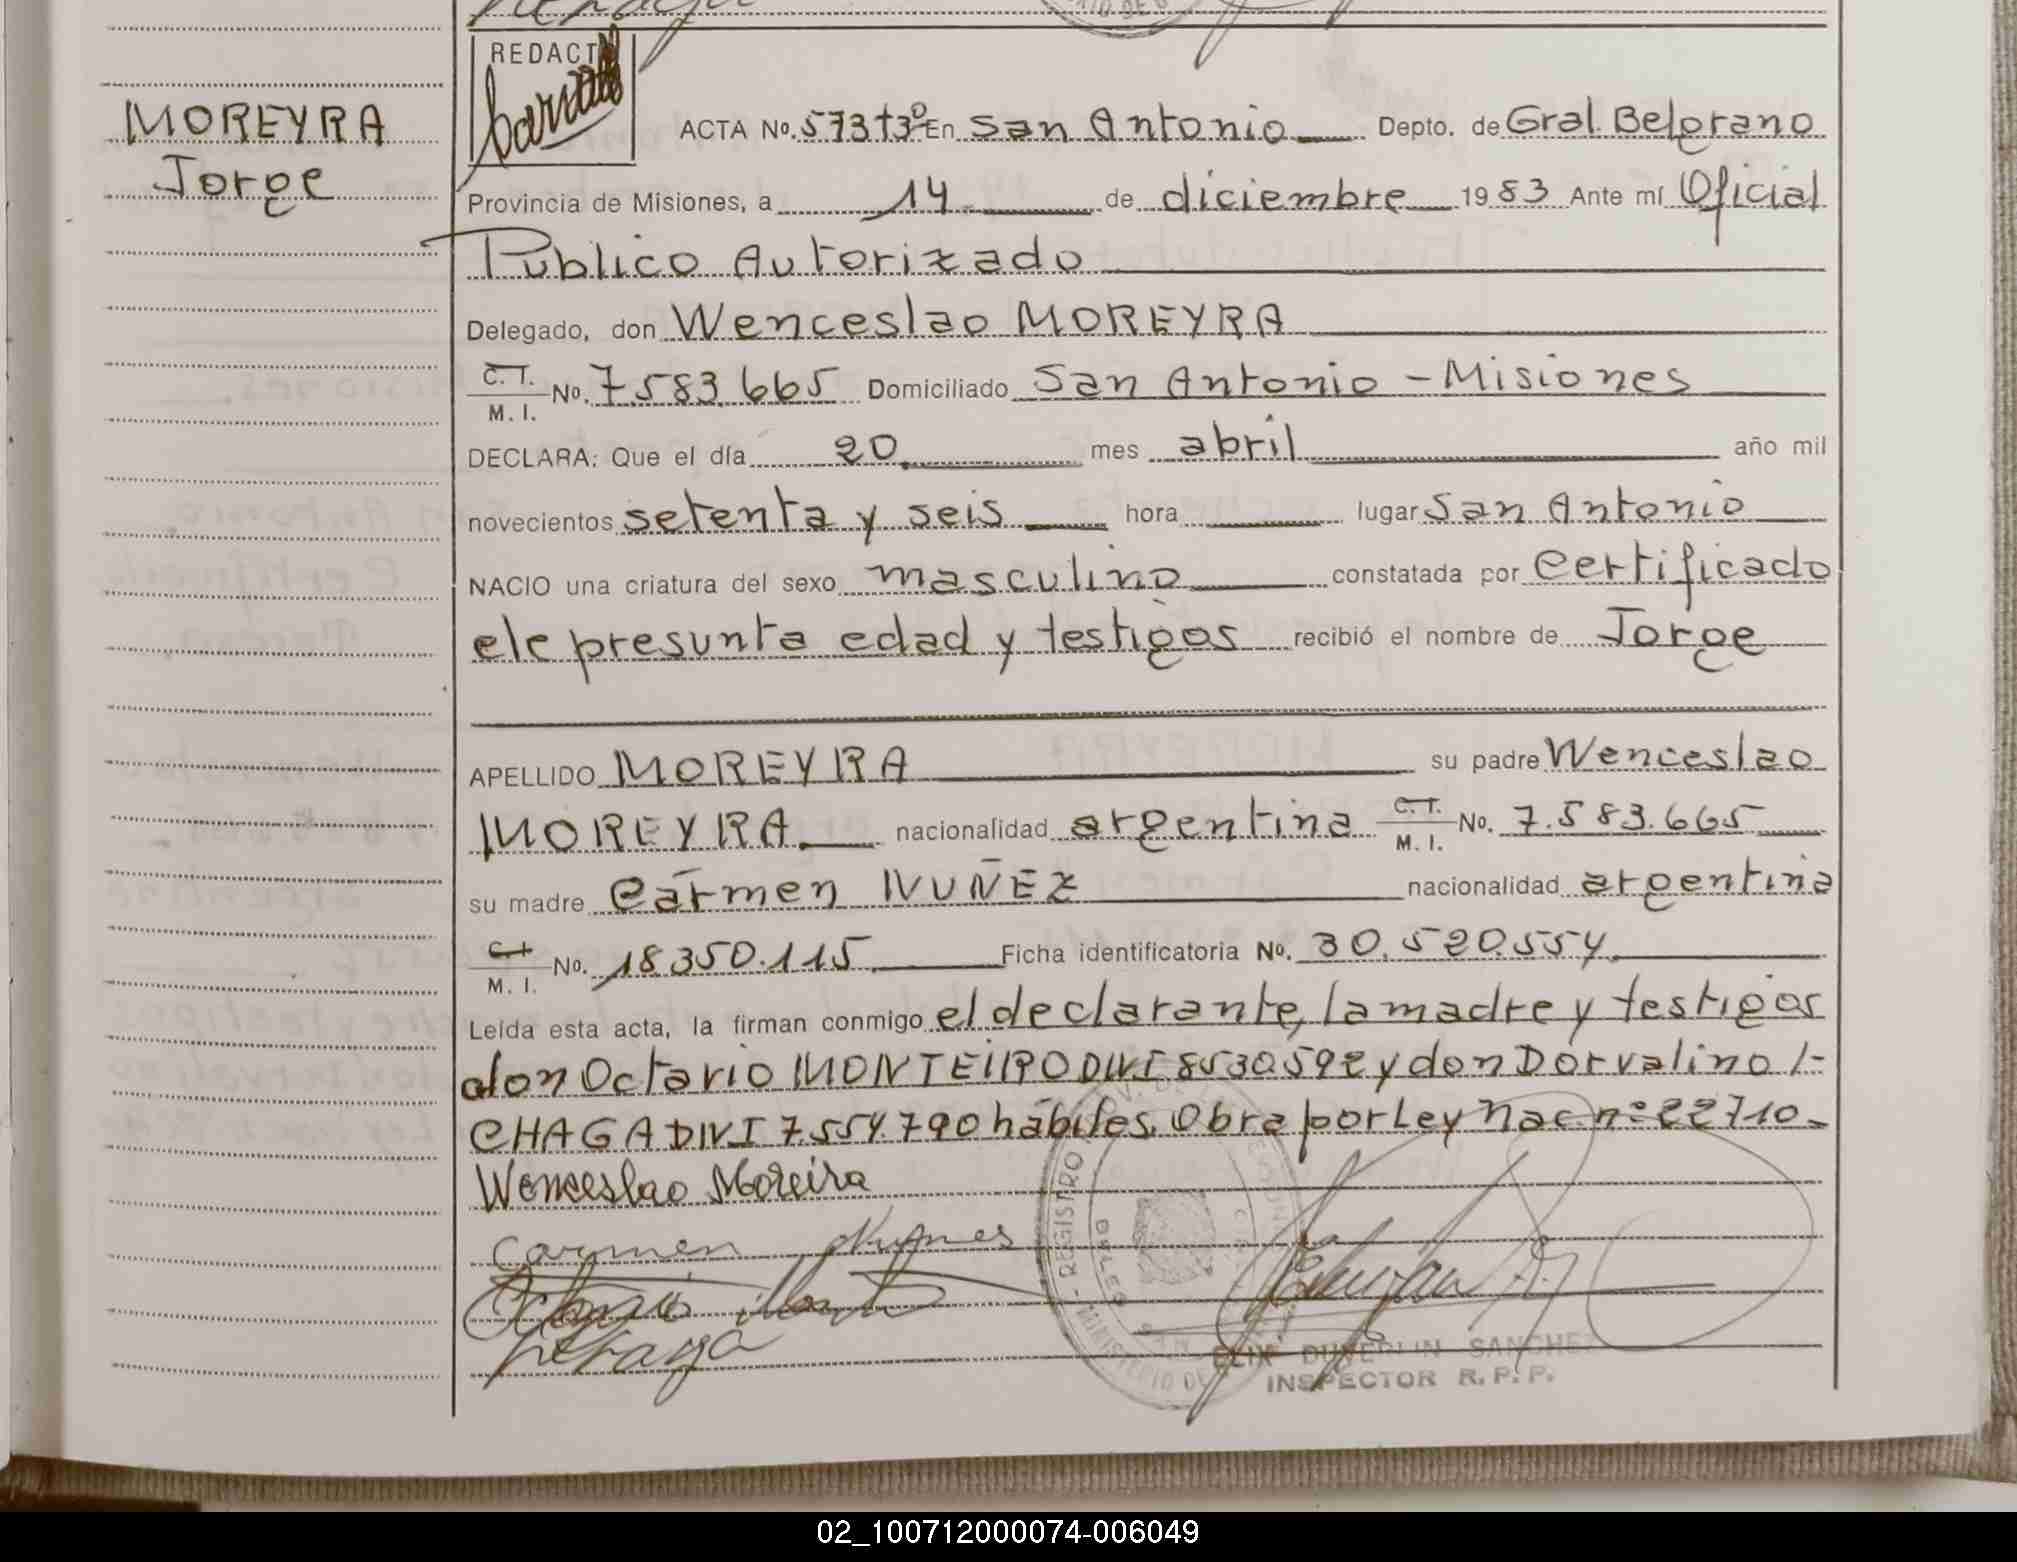 MOREYRA
Jorge
REDACT
ACTA No. 573 t3º En San Antonio Depto. de Gral. Belgrano
Provincia de Misiones, a 14 de diciembre 1983 Ante mí Oficial
Público Autorizado
Delegado, don Wenceslao MOREYRA
C. I. M. I. No. 7.583.665 Domiciliado San Antonio - Misiones
DECLARA: Que el día 20 mes abril año mil
novecientos setenta y seis hora lugar San Antonio
NACIO una criatura del sexo masculino constatada por Certificado
de presunta edad y testigos recibió el nombre de Jorge
APELLIDO MOREYRA su padre Wenceslao
MOREYRA nacionalidad argentina C. I. M. I. No. 7.583.665
su madre Cármen NUÑEZ nacionalidad argentina
M. I. No. 18350.115 Ficha identificatoria No. 30.520.554
Leída esta acta, la firman conmigo el declarante, la madre y testigos
don Octavio MONTEIRO DNI 8530592 y don Dorvalino /-
CHAGA DNI 7.554.790 hábiles. Obra por Ley Nac nº 22710-
Wenceslao Moreira
Carmen Nuñes
REGISTRO
MINISTERIO DE
SANCHEZ
INSPECTOR R. P. P.
02_100712000074-006049